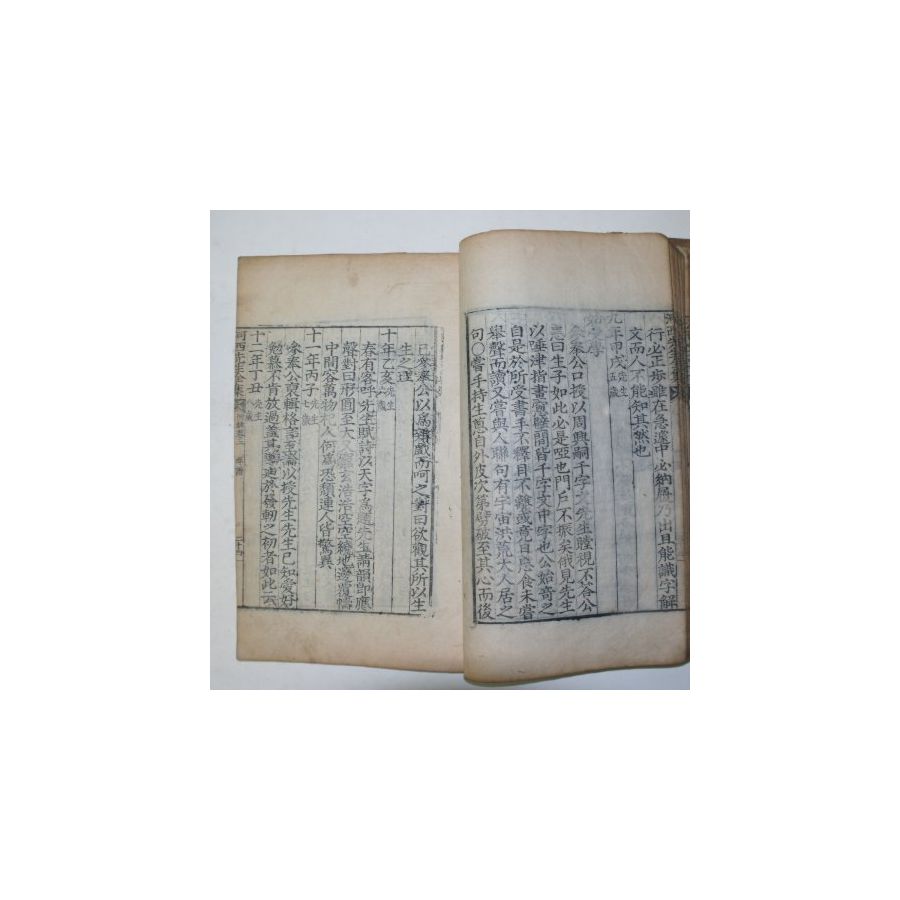 行必正步雖在急遽中必納屨乃出且能識字解
文而人不能知其然也
九年甲戌先生五歲
始學
參奉公口授以周興嗣千字文先生瞠視不答公
恚曰生子如此必是啞也門戶不振矣俄見先生
以唾津指畫窓壁間皆千字文中字也公始奇之
自是於所受書手不釋目不離或竟日忘食未嘗
擧聲而讀又嘗與人聯句有宇宙洪荒大人居之
句○嘗手持生葱自外皮次第劈破至其心而後
已參奉公以爲嬉戱而呵之對曰欲觀其所以生
生之理
十年乙亥先生六歲
春有客呼先生賦詩以天字爲題先生請韻卽應
聲對曰形圓至大又窮玄浩浩空空繞地邊覆幬
中間容萬物杞人何爲恐頹連人皆驚異
十一年丙子先生七歲
參奉公裒輯格言至論以授先生先生已知愛好
勉慕不肯放過盖其導迪於發軔之初者如此云
十二年丁丑先生八歲
河西先生全集